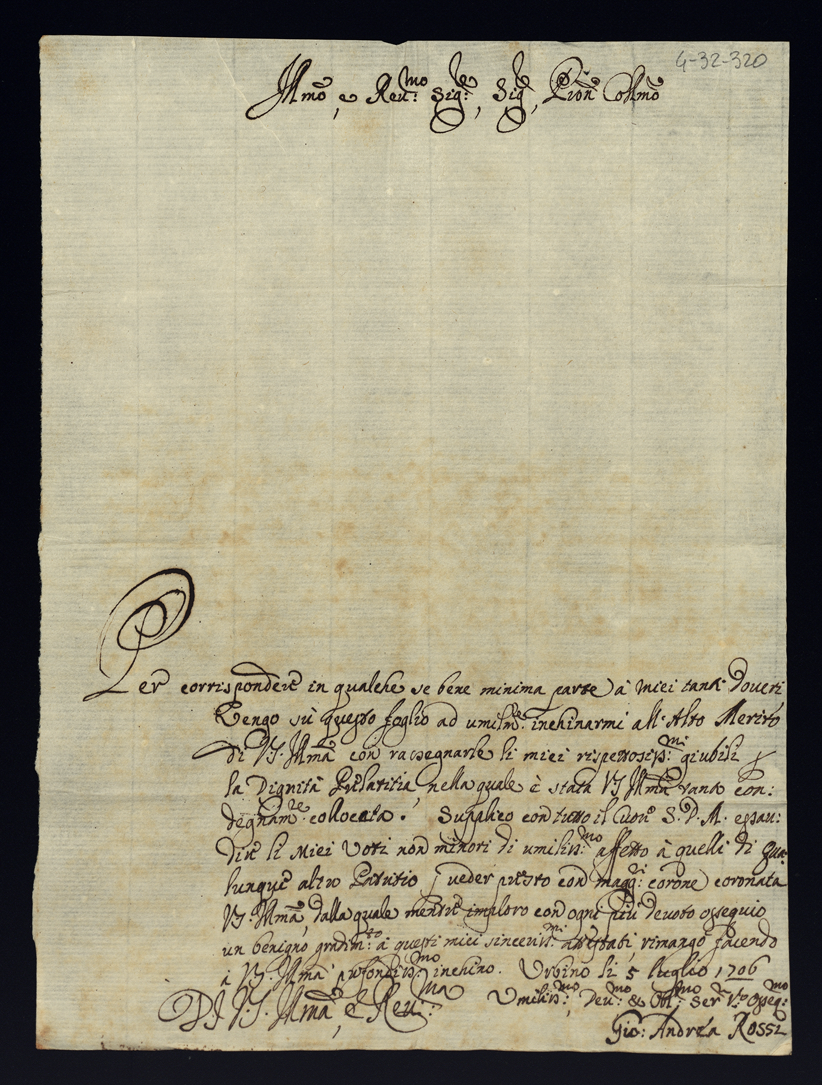 4-32-320
Illmo, e Reu:mo Sig:re, Sig:re, Pron Collmo
Per corrispondere in qualche se bene minima parte à miei tanti doueri
Vengo sù questo foglio ad umilm:te inchinarmi all'Alto Merito
di V.S. Illma con rassegnarle li miei rispettosiss:mi giubili
la Dignità Prelatitia nella quale è stata VS Illma tanto con:
degnam:te collocata. Supplico con tutto il Cuore S. D. M. essau:
dire li Miei Voti non minori di umiliss:mo affetto à quelli di qua:
lunque altro Patritio veder presto con magg:ri corone coronata
VS: Illma, dalla quale mentre imploro con ogni più deuoto ossequio
un benigno gradim:to à questi miei sinceriss:mi attestati, rimango facendo
à VS: Illma profondiss:mo inchino. Urbino li 5 luglio 1706
DI V.S. Illma, e Reu:ma Umiliss:mo, Deu:mo & Obl:mo Ser:re osseq:mo
Gio: Andrea Rossi